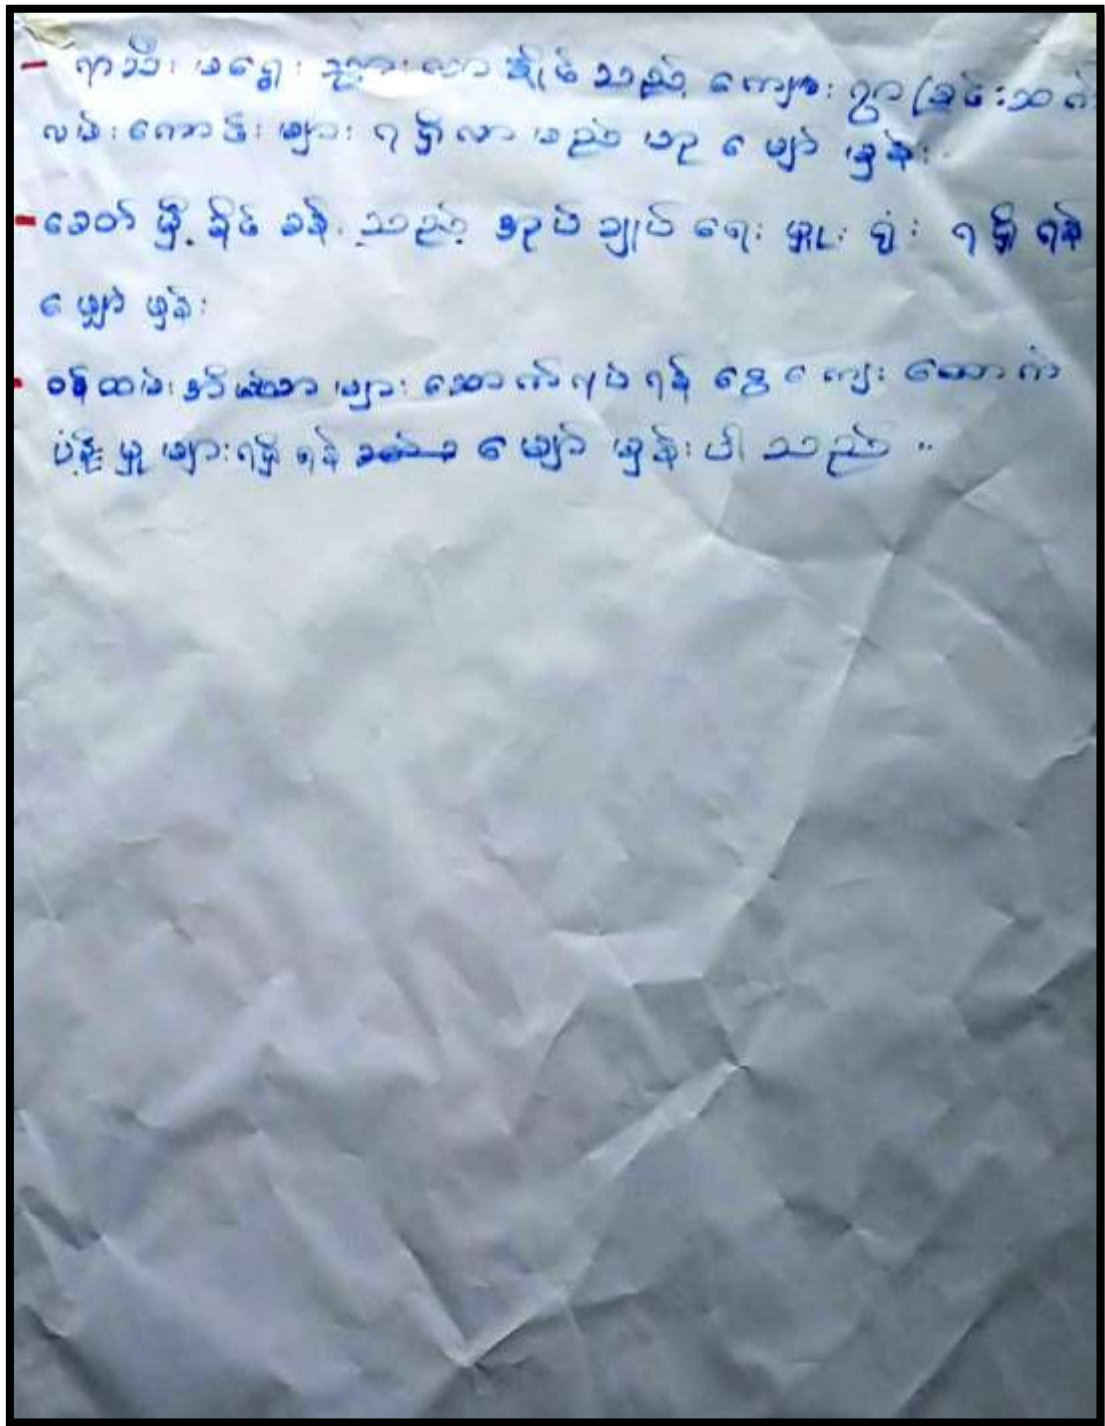 - ရာသီ မရွေး သွားလာ နိုင် သည့် ကျေးရွာ ခြင်းဆက်
လမ်းကောင်း များ ရရှိလာ မည် ဟု မျှော် မှန်း
- ခေတ် မှီ နိုင် ခန့် သည့် အုပ် ချုပ် ရေး မှူး ရုံး ရရှိ ရန်
မျှော် မှန်း
- ဝန်ထမ်းအိမ်ယာ များ ဆောက်လုပ် ရန် ငွေ ကျေး ထောက်
ပံ့ မှု များရရှိ ရန် မျှော် မှန်း ပါ သည် ။